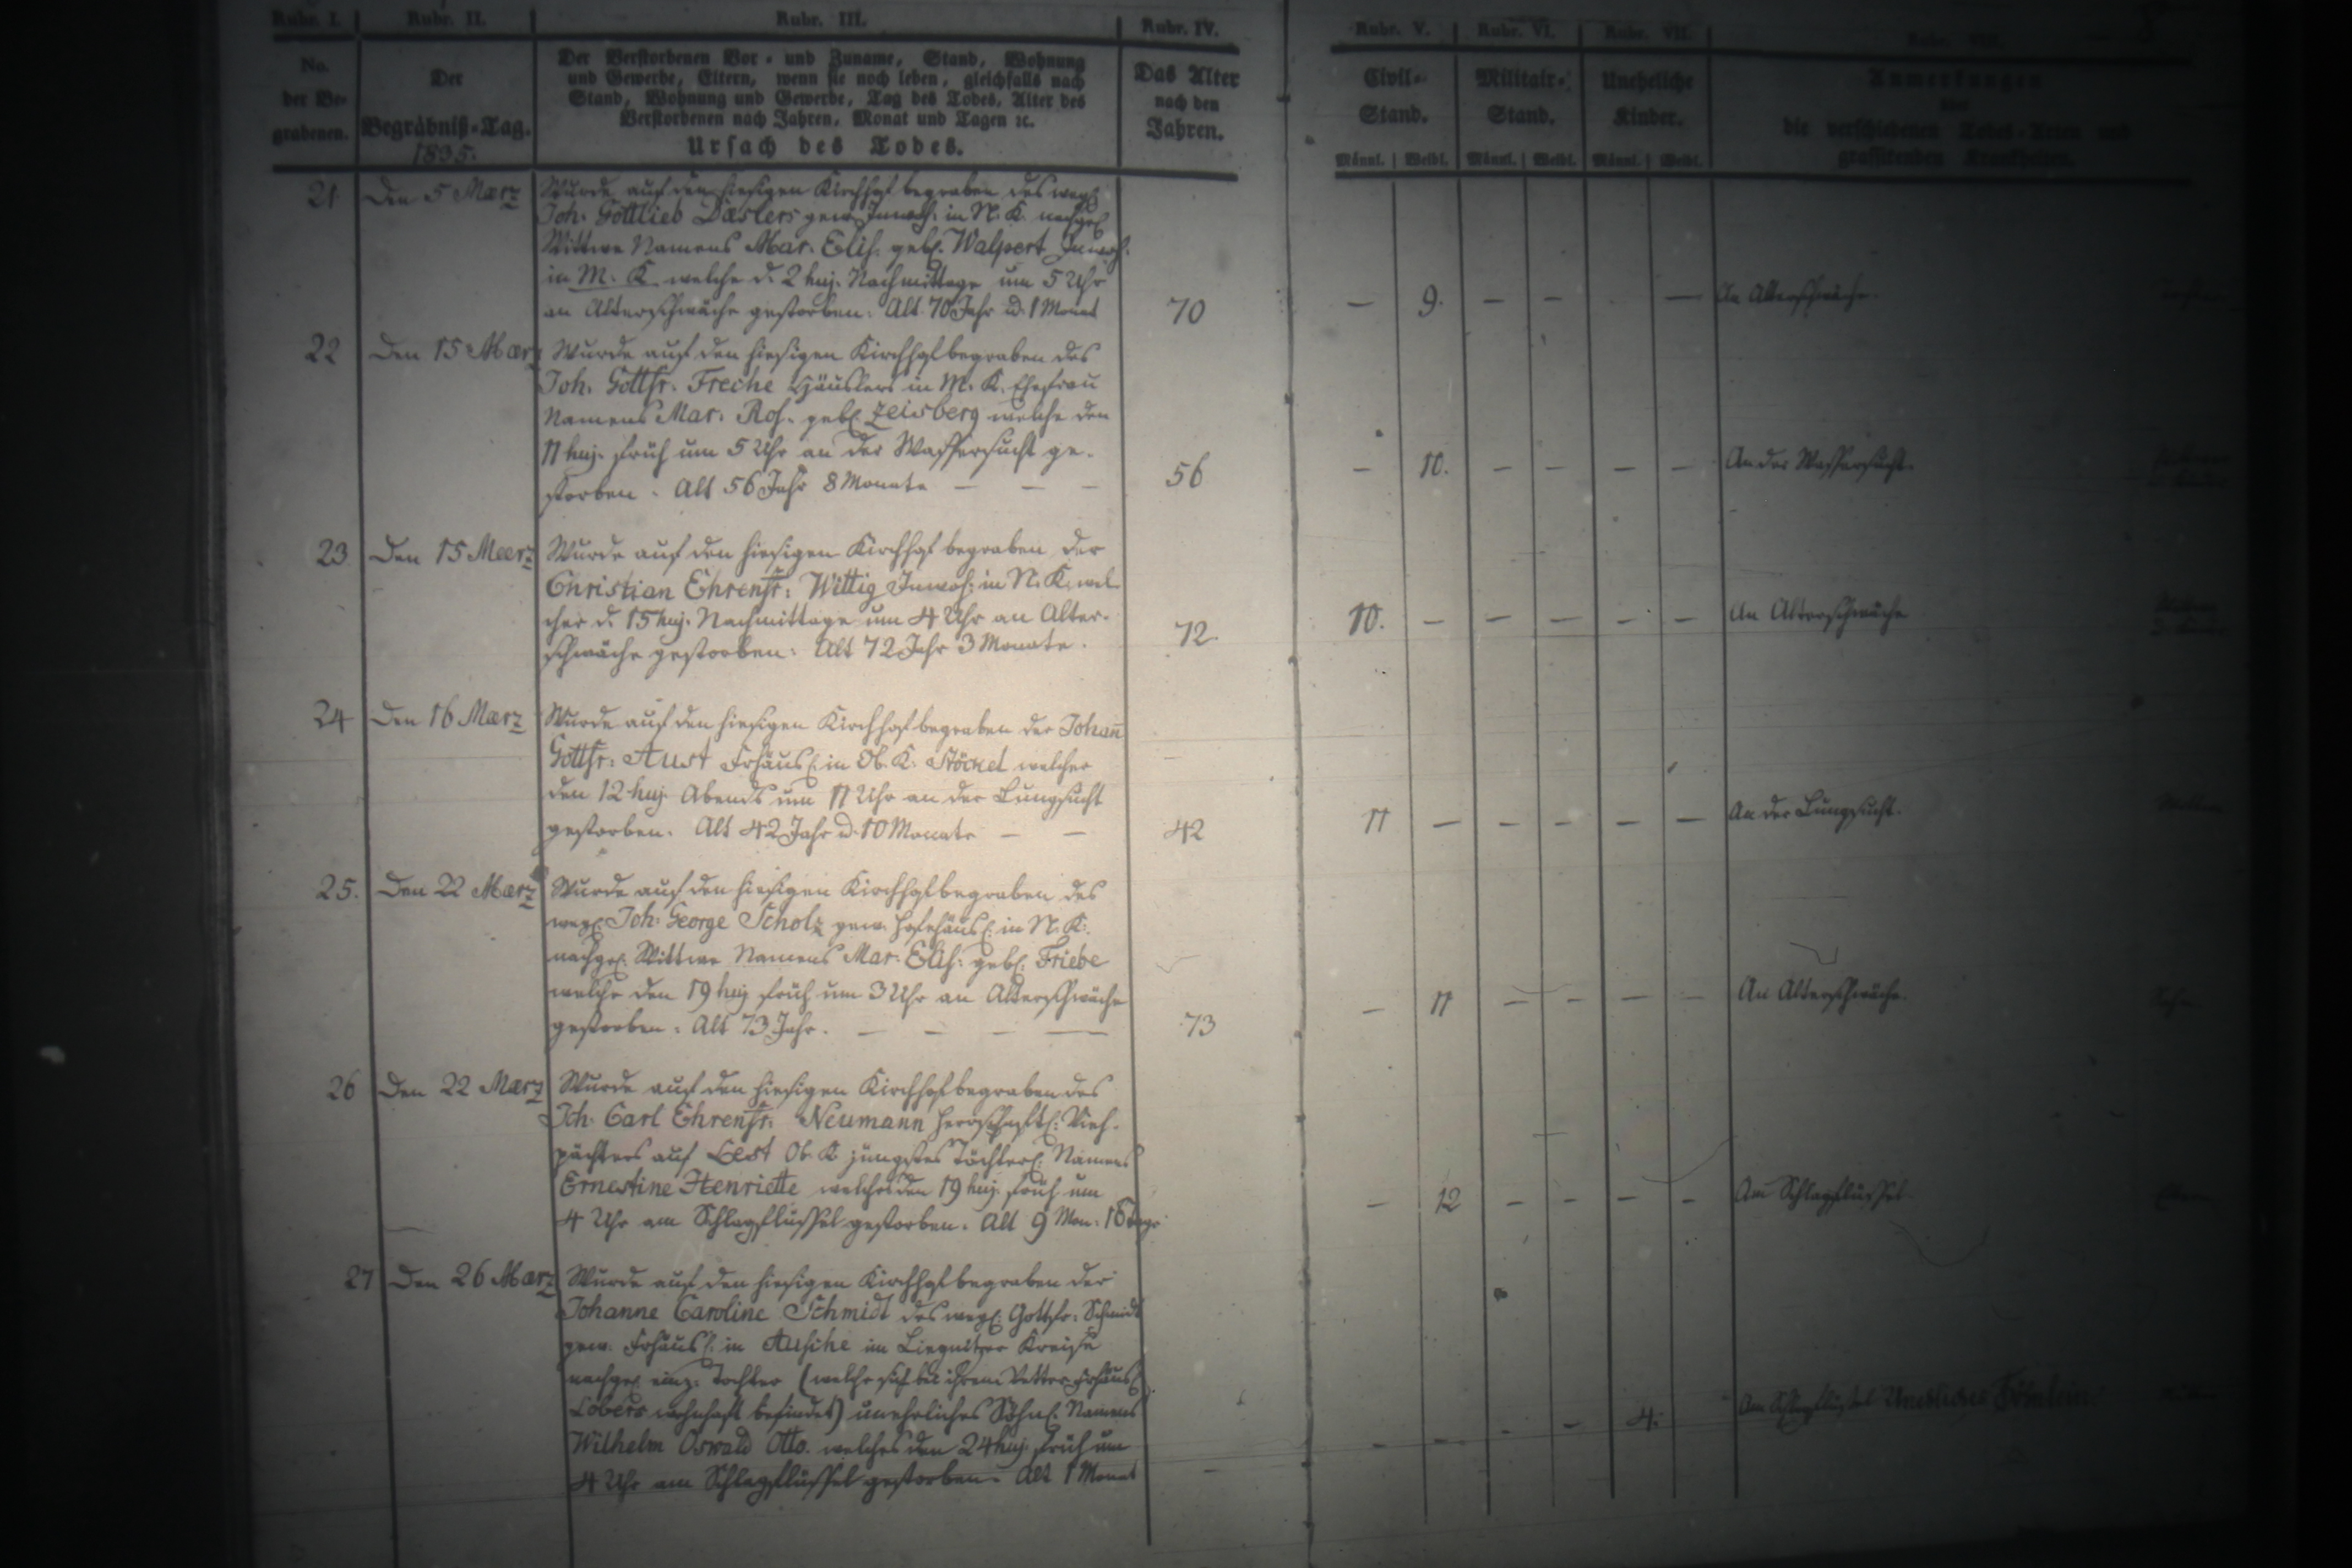 Rubr. I. Rubr. II. Rubr. III. Rubr. IV. Rubr. V. Rubr. VI. Rubr. VII.
No. der Be- grabenen.
Der Begräbniß-Tag. 1835.
Der Verstorbenen Vor- und Zuname, Stand, Wohnung
und Gewerbe, Eltern, wenn sie noch leben, gleichfalls nach
Stand, Wohnung und Gewerbe, Tag des Todes, Alter des
Verstorbenen nach Jahren, Monat und Tagen ꝛc.
Ursach des Todes.
Das Alter
nach den
Jahren.
Civil-
Stand.
Militair-
Stand.
Uneheliche
Kinder.
Anmerkungen
die verschiedenen Todes-Arten und
grassirenden Krankheiten.
Männl. Weibl. Männl. Weibl. Männl. Weibl.
21 Den 5 Mærz Wurde auf den hiesigen Kirchhof begraben des weyl.
Joh: Gottlieb Dæslers gew. Inwoh: in N. K. nachgel.
Wittwe Namens Mar. Elis. geb. Walpert Inwoh.
in M. K. welche d. 2 huj. Nachmittage um 5 Uhr
an Alterschwäche gestorben: Alt 70 Jahr u. 1 Monat 70 — 9. — — — An Alterschwäche.
22 Den 15 Mærz Wurde auf den hiesigen Kirchhof begraben des
Joh. Gottfr. Freche Häuslers in M. K. Ehefrau
Namens Mar. Ros. geb. Zeisberg welche den
11 huj. früh um 5 Uhr an der Wassersucht ge-
storben. Alt 56 Jahr 8 Monate — — — 56 — 10. — — — — An der Wassersucht.
23 Den 15 Meerz Wurde auf den hiesigen Kirchhof begraben der
Christian Ehrenfr: Wittig Inwoh: in N. K. wel-
cher d. 15 huj. Nachmittage um 4 Uhr an Alter-
schwäche gestorben: Alt 72 Jahr 3 Monate. 72. 10. — — — — — An Alterschwäche
24 Den 16 Mærz Wurde auf den hiesigen Kirchhof begraben der Johañ
Gottfr: Aust Frhäusl. in Ob. K. Stöckel welcher
den 12 huj. Abends um 11 Uhr an der Lungsucht
gestorben. Alt 42 Jahr u. 10 Monate — — 42 11 — — — — — An der Lungsucht.
25. Den 22 Mærz Wurde auf den hiesigen Kirchhof begraben des
weyl. Joh: George Scholz gew. Hofehäusl: in N. K.
nachgel. Wittwe Namens Mar. Elis: geb. Friebe
welche den 19 huj früh um 3 Uhr an Alterschwäche
gestorben: Alt 73 Jahr. — — — — 73 — 11 — — — — An Alterschwäche.
26 Den 22 Mærz Wurde auf den hiesigen Kirchhof begraben des
Joh. Carl Ehrenfr. Neumann herrschaftl: Vieh-
pächters auf Lest Ob. K. jüngstes Töchterl: Namens
Ernestine Henriette welches den 19 huj. früh um
4 Uhr am Schlagflüssel gestorben. Alt 9 Mon: 18 Tage — 12 — — — — Am Schlagflüssel
27 Den 26 Mærz Wurde auf den hiesigen Kirchhof begraben der
Johanne Caroline Schmidt des weyl. Gottfr: Schmidt
gew. Frhäusl: in Ausche im Liegnitzer Kreise
nachgel. einz. Tochter (welche sich bei ihrem Vetter Frhäusl.
Lobers wohnhaft befindet) unehrliches Söhnl. Namens
Wilhelm Oswald Otto. welches den 24 huj. früh um
4 Uhr am Schlagflüssel gestorben. Alt 1 Monat — — — — — 4. Am Schlagflüssel